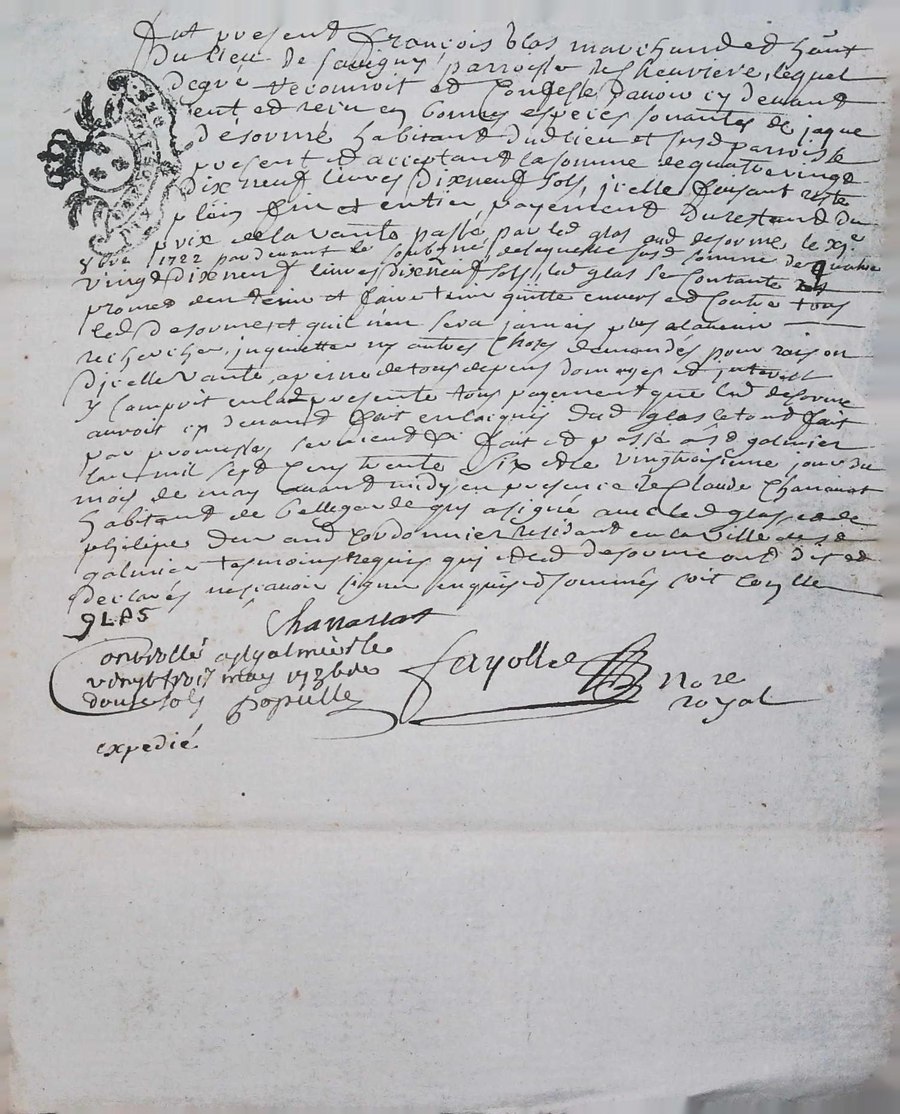 fut present françois glas marchand et hânt
du lieu de Savigny parroisse de Cheuriere, lequel
degré recounoit et Confesse dauoir cy deuant
eut et recu en bonnes especes sonantes de jaque
désormé habitant dudlieu et susd parroisse
present et acceptant la somme de quatre vingt
dix neuf liures dix neuf sols, jcelle faisant reste
plein fin et entier payement du restand du
prix de la vante passé par led glas aud desormé le xje
1722 par deuant le soubsigné, de laquelle susd somme de quatre
vingt dix neuf liures dix neuf sols, led glas se Contante
promet den tenir et faire tenir quitte enuers et Contre tous
led desormé et quil n'en sera jamais plus alauenir
rechercher, inquietter ny autres choses demandés pour raison
djcelle vante, a peine de tous depens domages et
y Comprit en lad presente tous payement que led desorme
auroit cy deuand fait en laquis dud glas le tout fait
par promesse, fait et passé a sd galmier
lan mil sept Cens trente six et le vingtroisieme jour du
mois de may auant midy en presence de Claude Chanauat
habitant de bellegarde qui a signé auec led glas, et de
philipe durand Cordonnier residant en la ville de sd
galmier tesmoins requis qui et led desorme ont dit et
declarés ne scauoir signer enquis et sommés soit Conlle
gLAS
Chanauat
Controllé a st galmier le
vingt trois may 1736 reçu
douze sols populle
fayolle nore
royal
expedié